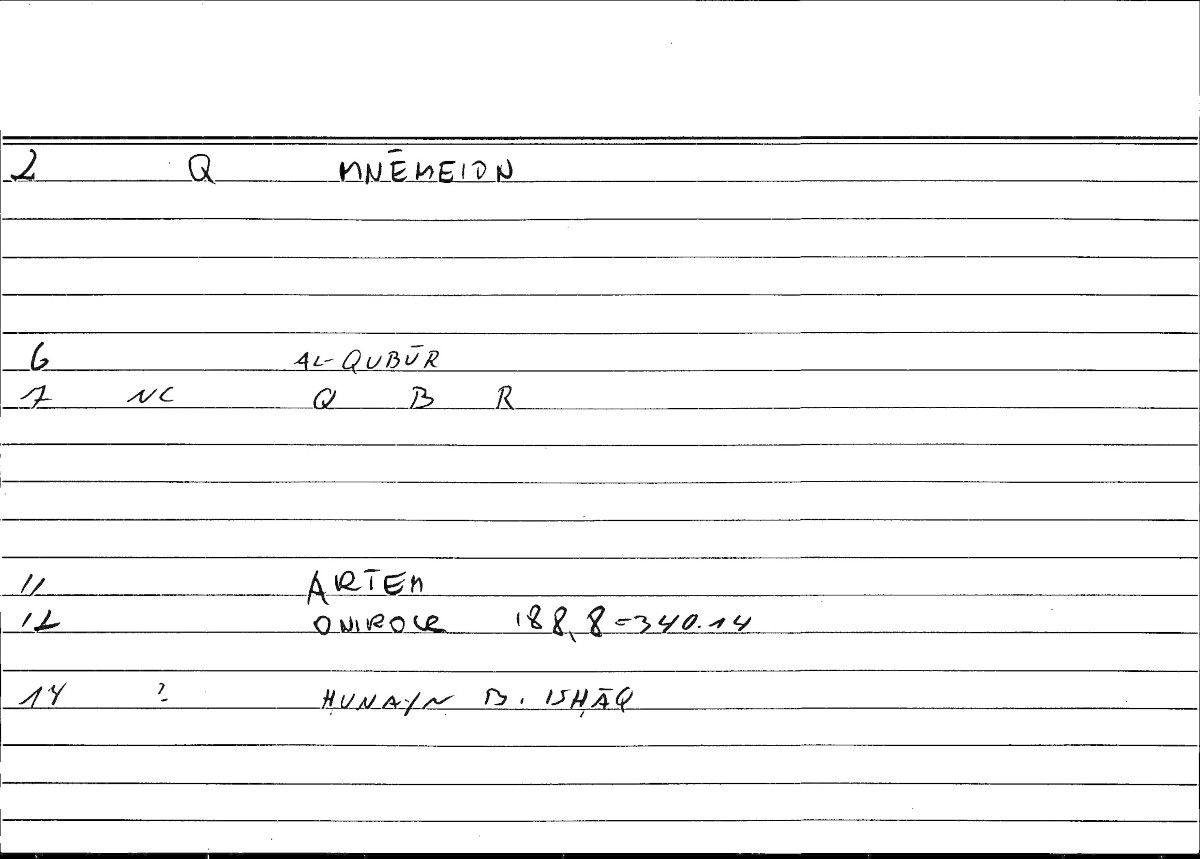 2 Q MNĒMEION
6 AL-QUBŪR
7 NC Q B R
11 ARTEM
12 ONIROCR 188,8=340.14
14 ? ḤUNAYN B. ISḤĀQ